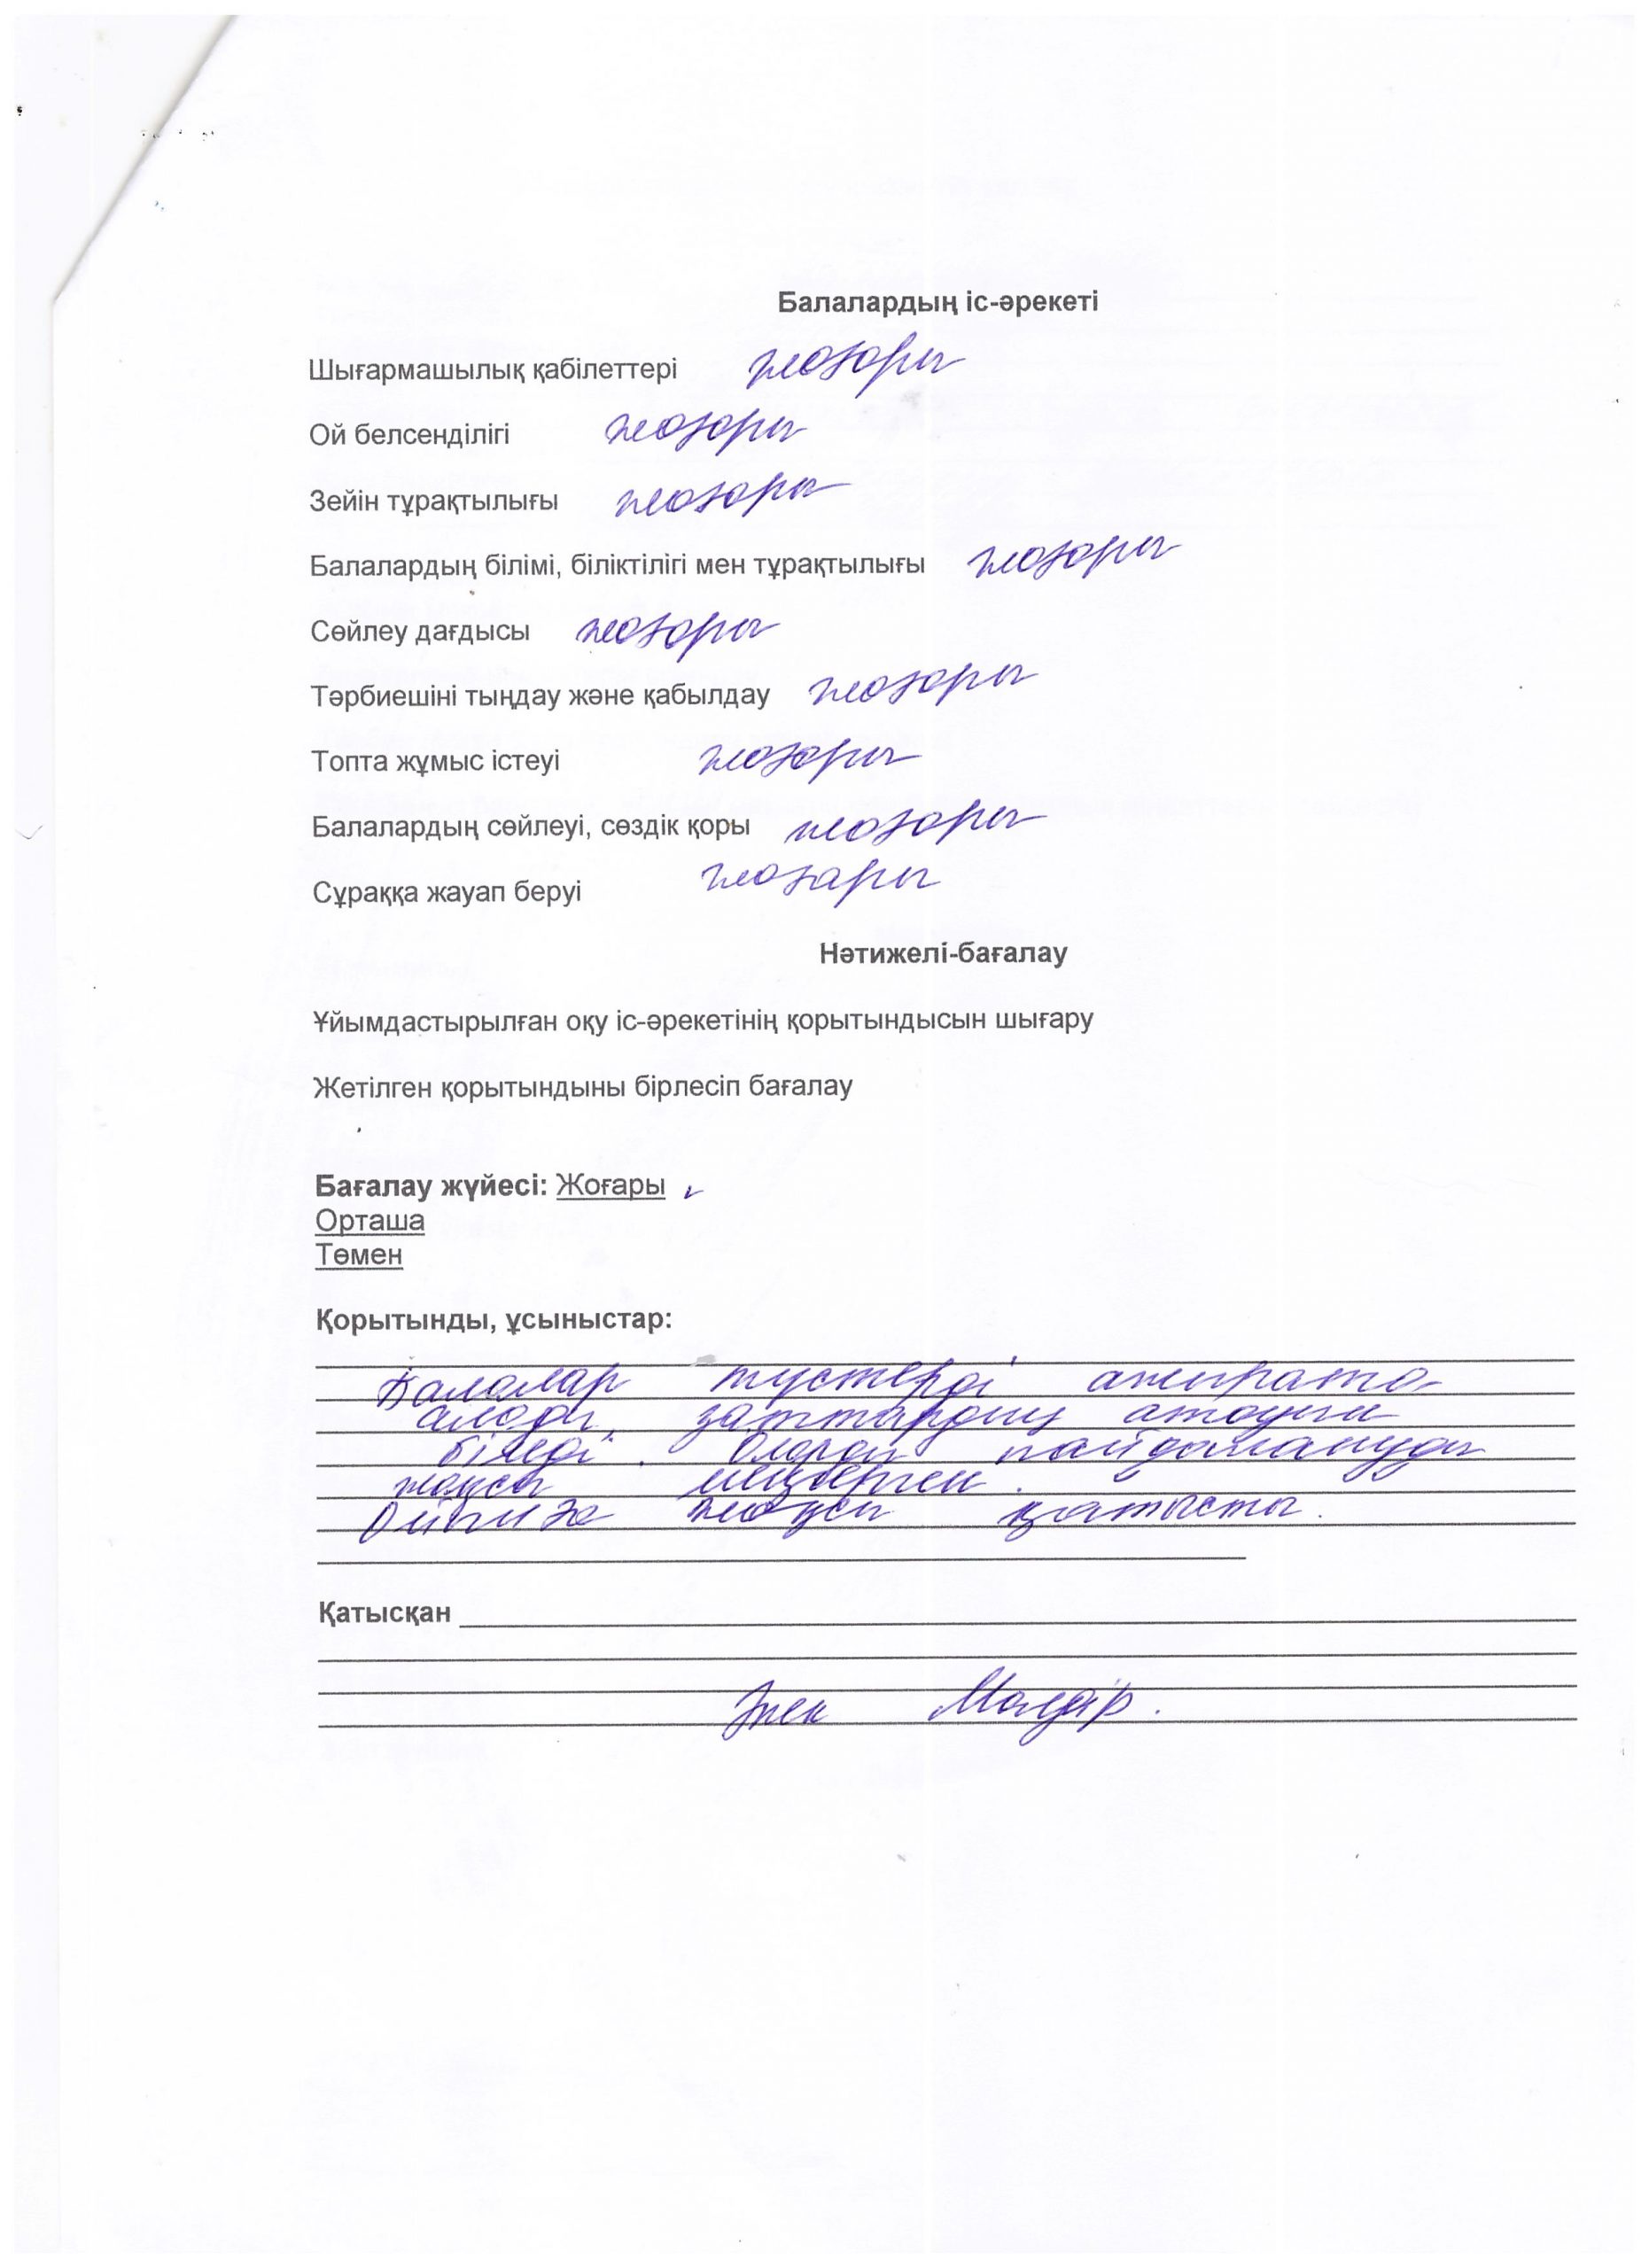 Балалардың іс-әрекеті
Шығармашылық қабілеттері жоғары
Ой белсенділігі жоғары
Зейін тұрақтылығы жоғары
Балалардың білімі, біліктілігі мен тұрақтылығы жоғары
Сөйлеу дағдысы жоғары
Тәрбиешіні тыңдау және қабылдау жоғары
Топта жұмыс істеуі жоғары
Балалардың сөйлеуі, сөздік қоры жоғары
Сұраққа жауап беруі жоғары
Нәтижелі-бағалау
Ұйымдастырылған оқу іс-әрекетінің қорытындысын шығару
Жетілген қорытындыны бірлесіп бағалау
Бағалау жүйесі: Жоғары ✓
Орташа
Төмен
Қорытынды, ұсыныстар:
Балалар түстерді ажырата
алады, заттардың атауын
біледі. Оларды пайдалануды
жақсы меңгерген.
Ойынға жақсы қатысты.
Қатысқан
Мөлдір.